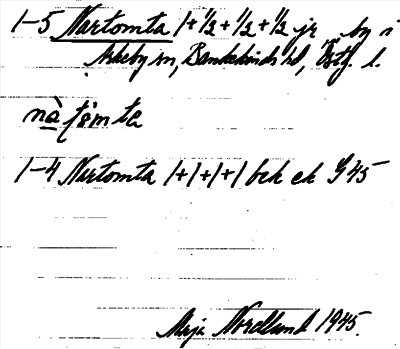 1-5 Nartomta 1+½+½+½ jr, by i
Askeby sn, Bankekinds hd, Östg. l.
nà ṭomta
1-4 Nartomta 1+1+1+1 bek ek G 45
Maja Nordlund 1945.